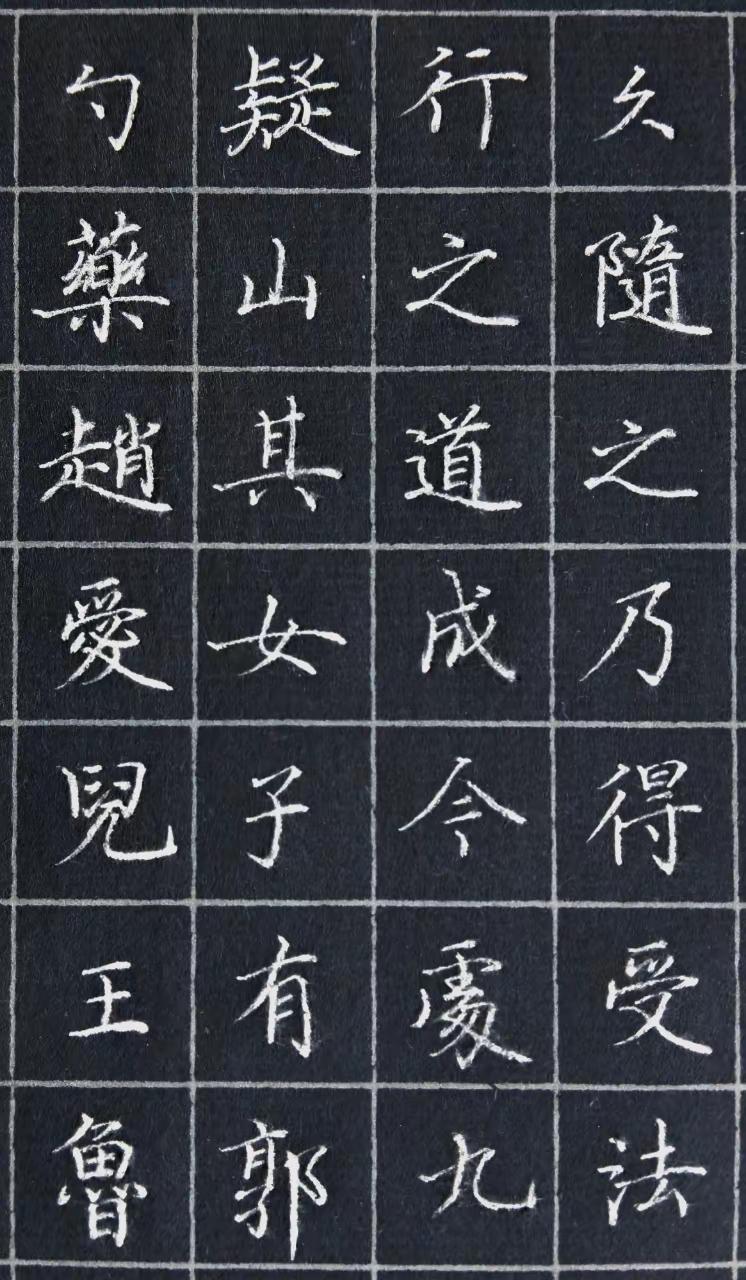 久隨之乃得受法
行之道成今處九
疑山其女子有郭
勺藥趙愛兒王
魯